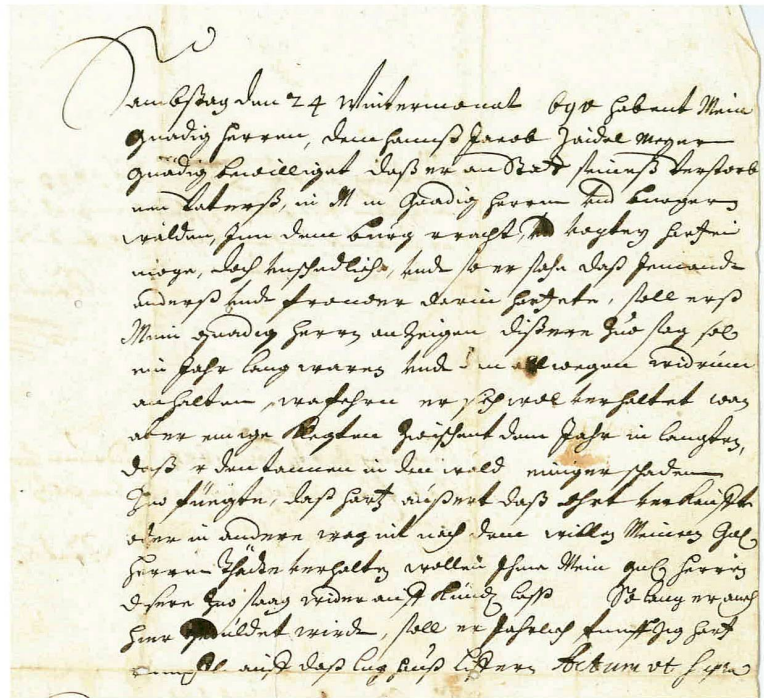 Sambstag den 24 Wintermonat 690 habent Mein
gnädig Herren, dem Hannß Jacob Zaidel Meyer
gnädig bewilliget daß er an Statt seineß verstorb
nen Vaterß, in M in Gnädig Herren und burgern
wälden, Inn dem burg vogtey hartzen
möge, doch unschedlich, unde so er sehe daß Jemande
anderß unde frömder darin hartzete, soll erß
Mein gnädig Herren anzeigen dißere Zuo sag sol
ein Jahr lang waren unde wegen widrum
anhalten, wafehrn er sich wol verhaltet wan
aber einige klegten Zwischent dem Jahr in langten,
daß er den tannen in den wald einiger schaden
Zuo füegte, daß hartz außert daß ohrt verkauffte
oder in andere weg nit nach dem willen Meinen
Herren verhalten wollen Ihme Mein Herren
disere Zuo saag wider auff So lang er auch
hier geduldet wirdt, soll er Jährlich fünffzig hartz
auff daß Zug huß liffern Actum ut supra